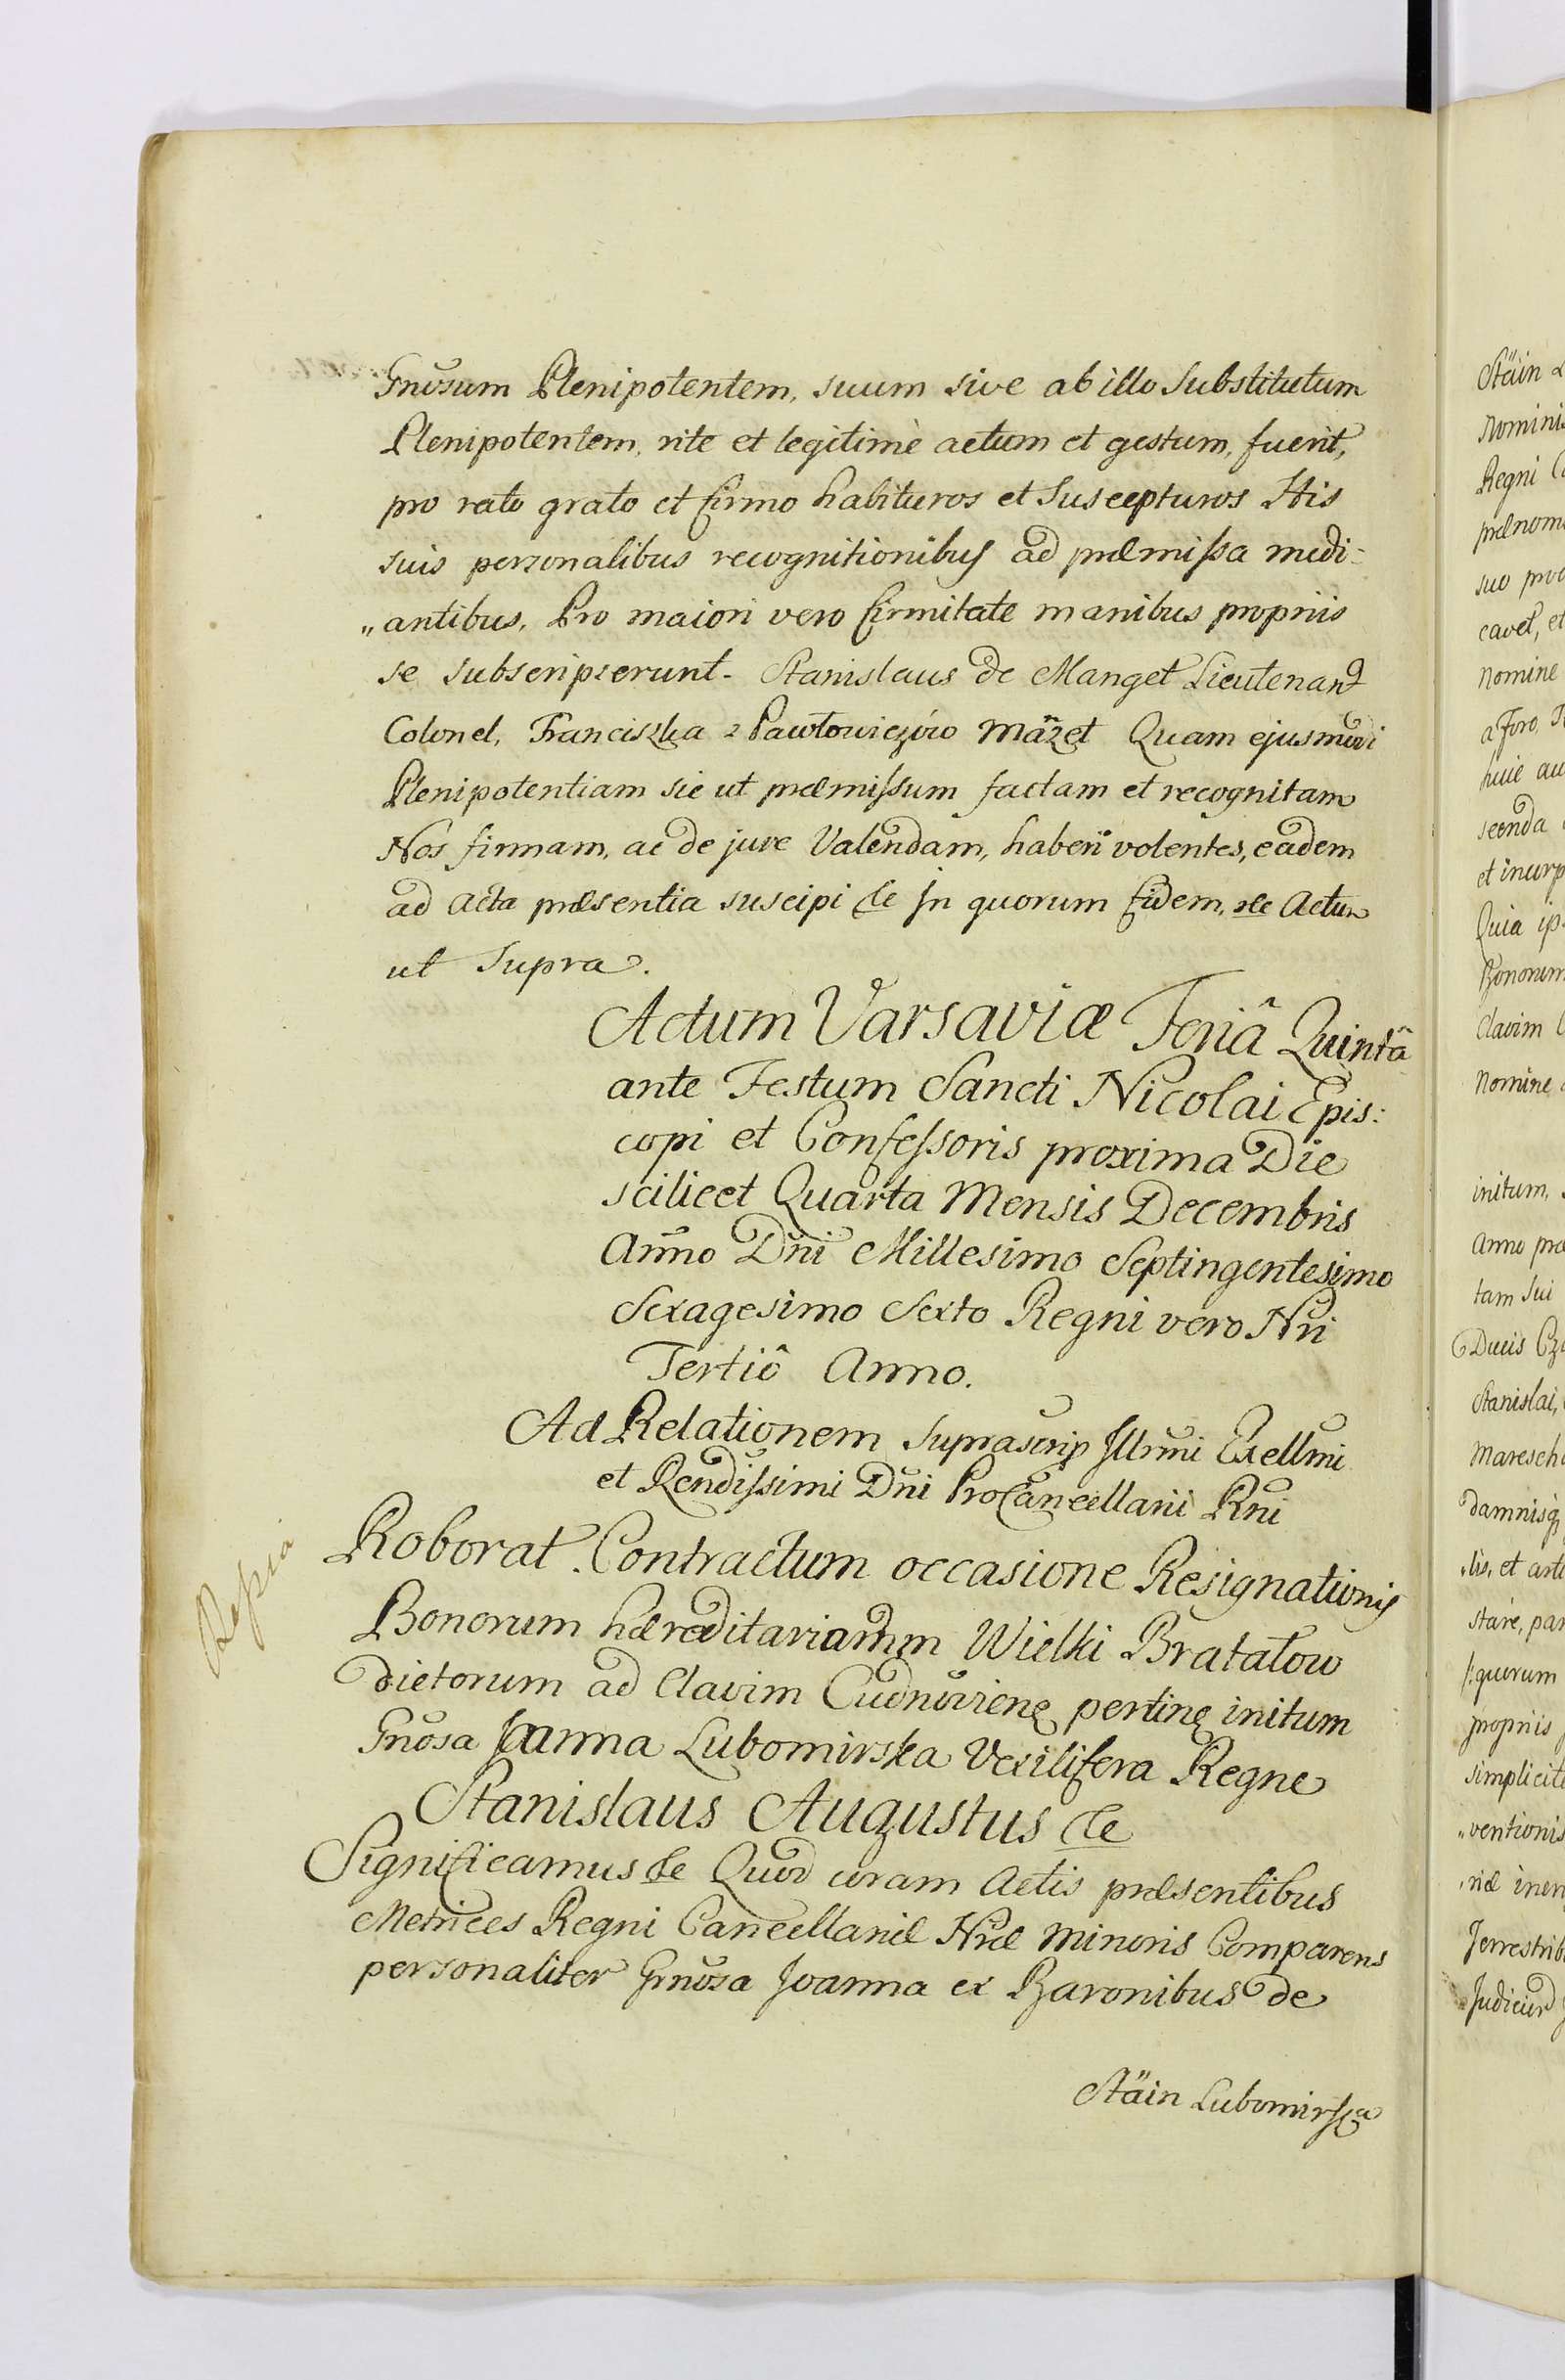 Gnõsum Plenipotentem, suum sive ab illo Substitutum
Plenipotentem, rite et legitimè actum et gestum, fuerit,
pro rato grato et firmo habituros et Suscepturos His
suis personalibus recognitionibus ad præmissa medi-
„antibus, Pro maiori vero firmitate manibus propriis
se subscripserunt. Stanislaus de Manget Lieutenant
Colonel, Franciszka z Pawłowiczów Mãzet Quam ejusmõdi
Plenipotentiam sic ut præmissum factam et recognitam
Nos firmam, ac de jure Valendam, haberi volentes, eadem
ad Acta præsentia suscipi &c In quorum fidem, &c Actum
ut Supra.
Actum Varsaviæ Feriâ Quintâ
ante Festum Sancti Nicolai Epis:
copi et Confessoris proxima Die
scilicet Quarta Mensis Decembris
Anno Dñi Millesimo Septingentesimo
Sexagesimo Sexto Regni vero Nri
Tertiô Anno.
Ad Relationem Suprascrip Illmi Exellmi
et Rendissimi Dñi ProCancellarii Rñi
Repsa
Roborat. Contractum occasione Resignationis
Bonorum hæreditariamm Wielki Bratałow
dictorum ad Clavim Cudnoviens pertine initum
Gnõsa Joanna Lubomirska Vexilifera Regne
Stanislaus Augustus &c
Significamus &c Quod coram Actis præsentibus
Metrices Regni Cancellariæ Nræ Minoris Comparens
personaliter Gnõsa Joanna ex Baronibus de
Stäin Lubomirska
Stäin
Nominis
Regni
prænom
suo pro
cavet, et
Nomine
a foro,
huic au
seenda
et incurp
Quia ip
Bonorum
Clavim
Nomine
initum,
Anno præ
tam Sui
Ducis Cza
Stanislai,
Maresch
damnisq
„lis, et arti
stare, par
quorum
propriis
simplicite
„ventionis
„riæ inen
Terrestrib
Judiciur